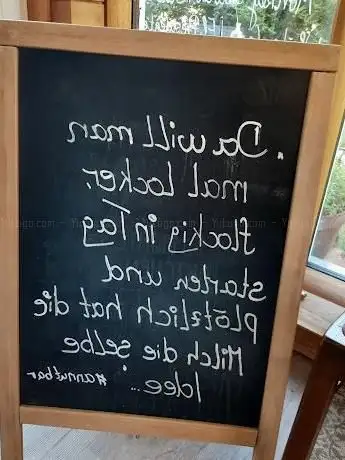 Da will man
mal locker,
flockig in Tag
starten und
plötzlich hat die
Milch die selbe
Idee...
#annutbar